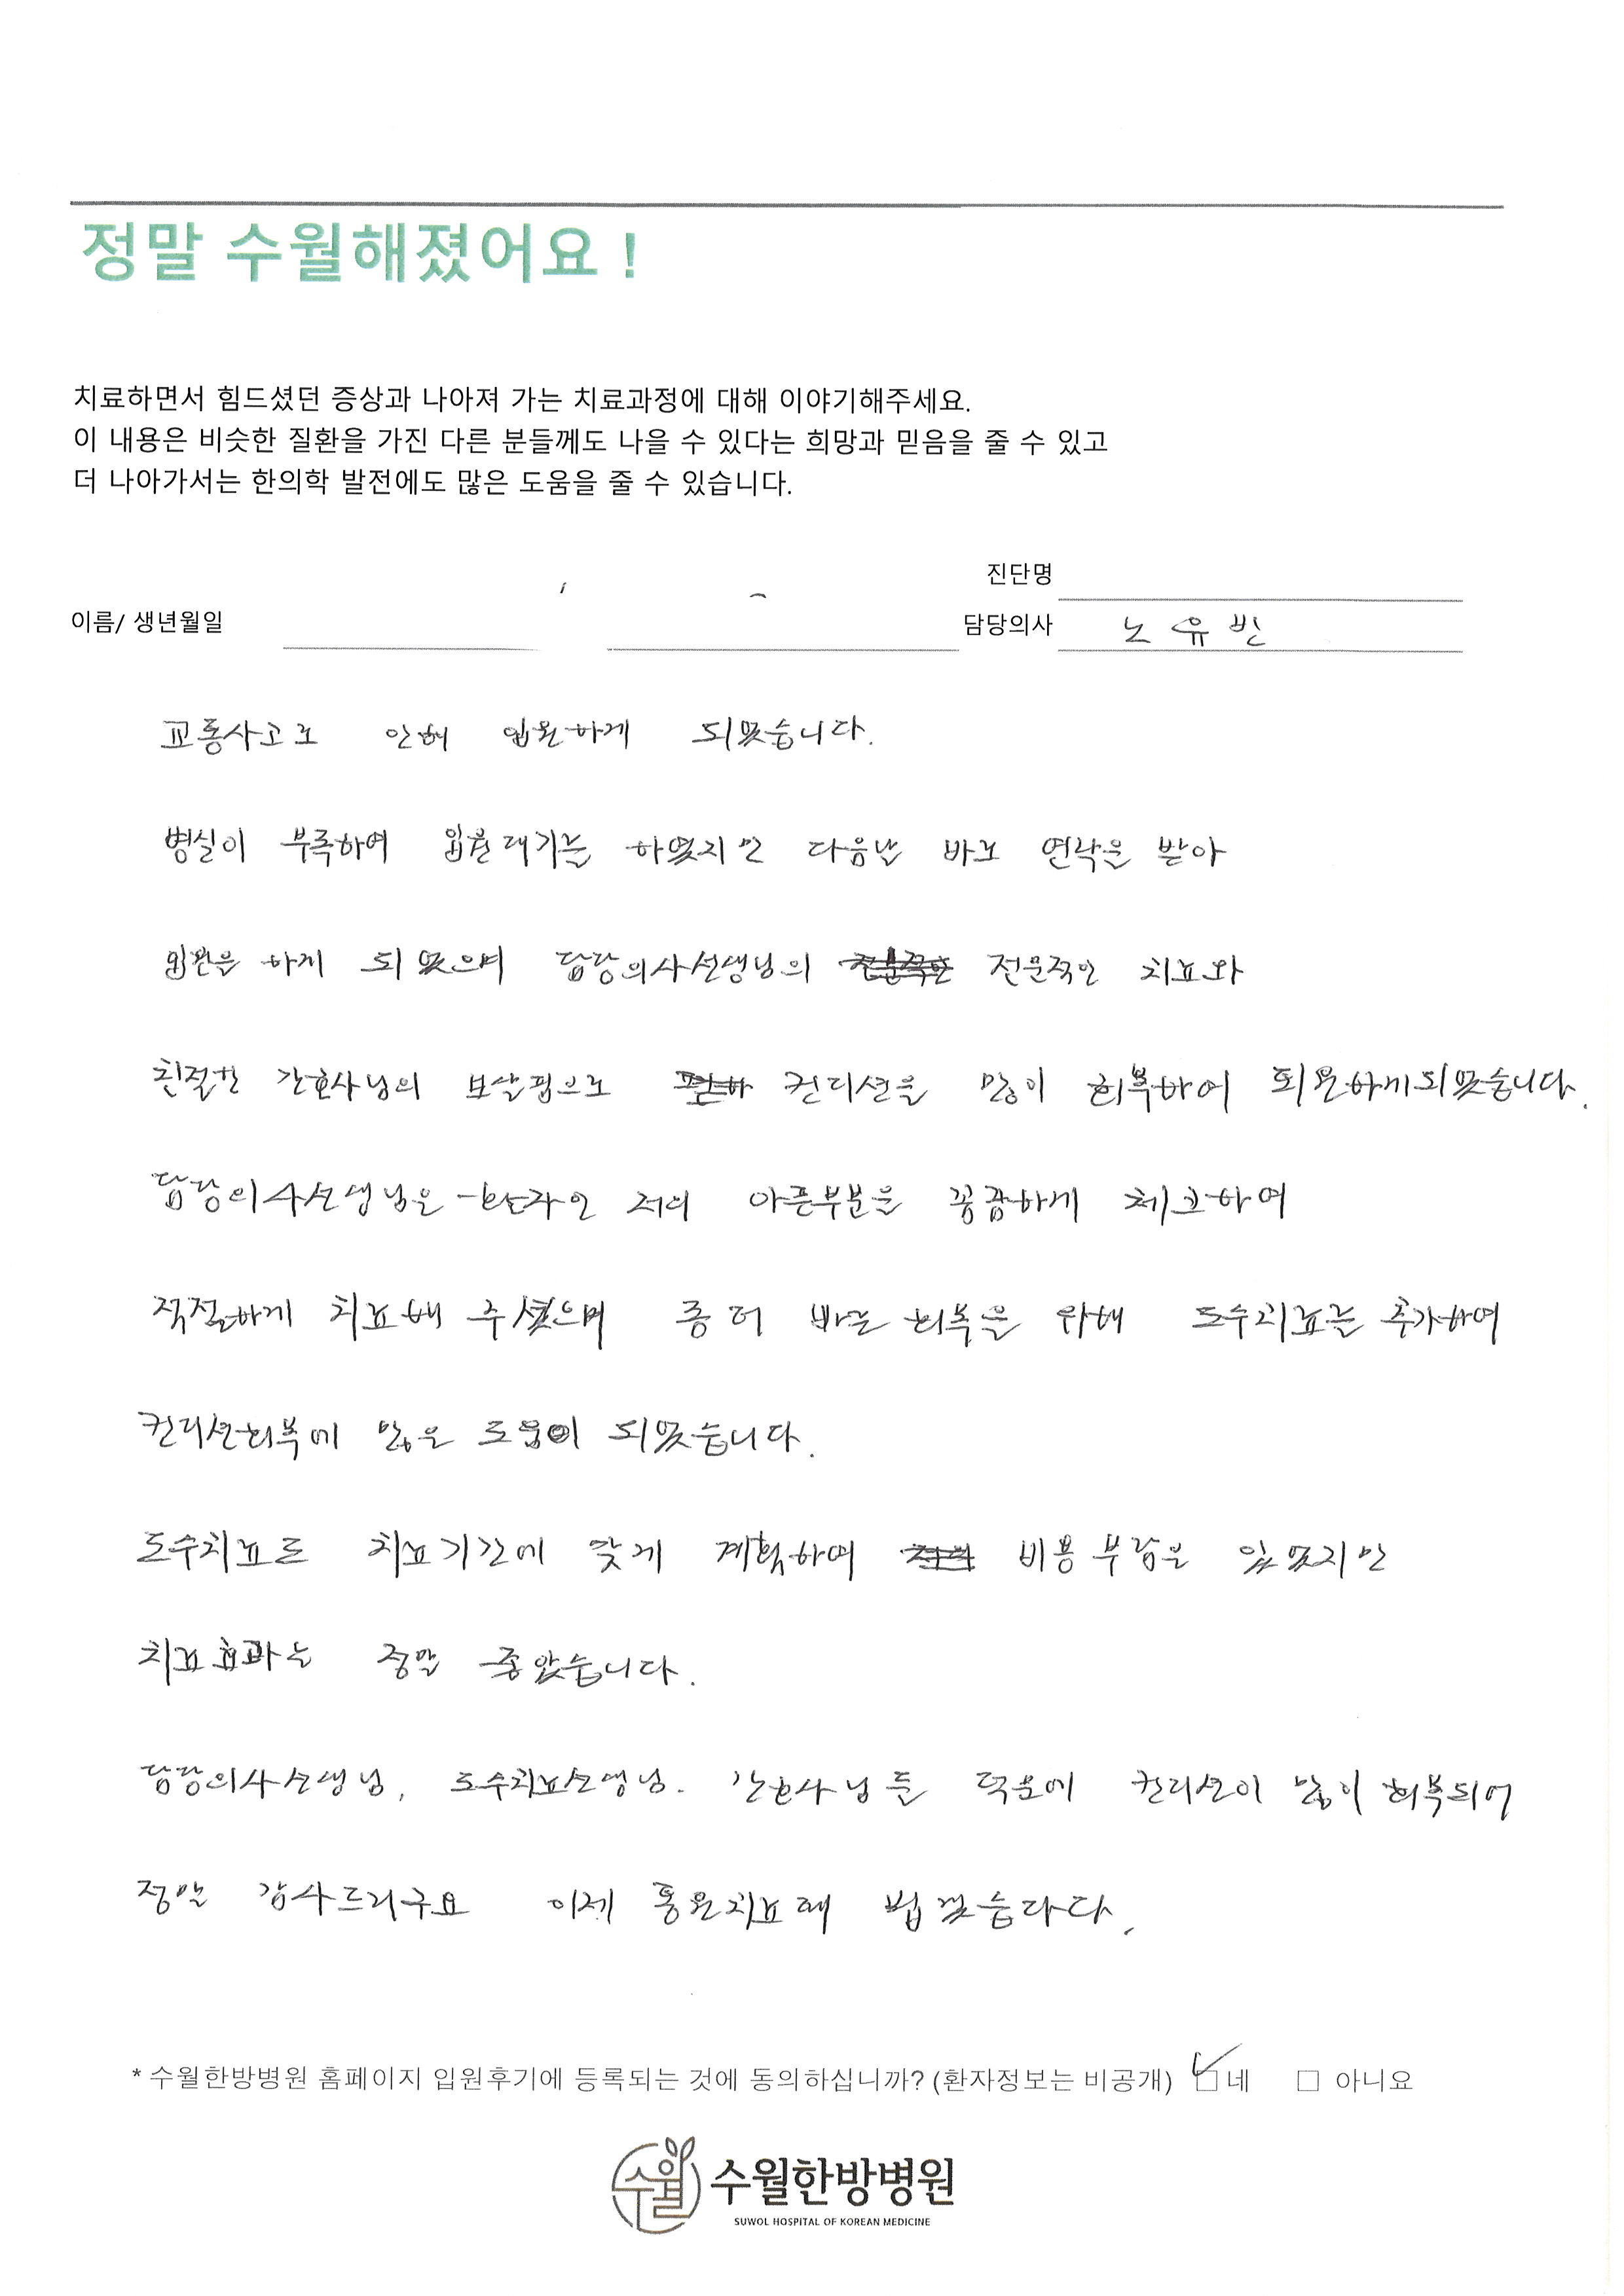 정말 수월해졌어요 !
치료하면서 힘드셨던 증상과 나아져 가는 치료과정에 대해 이야기해주세요.
이 내용은 비슷한 질환을 가진 다른 분들께도 나을 수 있다는 희망과 믿음을 줄 수 있고
더 나아가서는 한의학 발전에도 많은 도움을 줄 수 있습니다.
진단명
이름/ 생년월일
담당의사 노유빈
교통사고로 인해 입원하게 되었습니다.
병실이 부족하여 입원대기는 하였지만 다음날 바로 연락을 받아
입원을 하게 되었으며 담당의사선생님의 전문적인 치료와
친절한 간호사님의 보살핌으로 컨디션을 많이 회복하여 퇴원하게되었습니다.
담당의사선생님은 환자인 저의 아픈부분을 꼼꼼하게 체크하여
적절하게 치료해 주셨으며 좀 더 바른 회복을 위해 도수치료를 추가하여
컨디션회복에 많은 도움이 되었습니다.
도수치료도 치료기간에 맞게 계획하여 비용부담은 있었지만
치료효과는 정말 좋았습니다.
담당의사선생님, 도수치료선생님. 간호사님들 덕분에 컨디션이 많이 회복되어
정말 감사드리구요 이제 통원치료때 뵙겠습다다.
* 수월한방병원 홈페이지 입원후기에 등록되는 것에 동의하십니까? (환자정보는 비공개) ☑ 네 □ 아니요
수월 수월한방병원
SUWOL HOSPITAL OF KOREAN MEDICINE